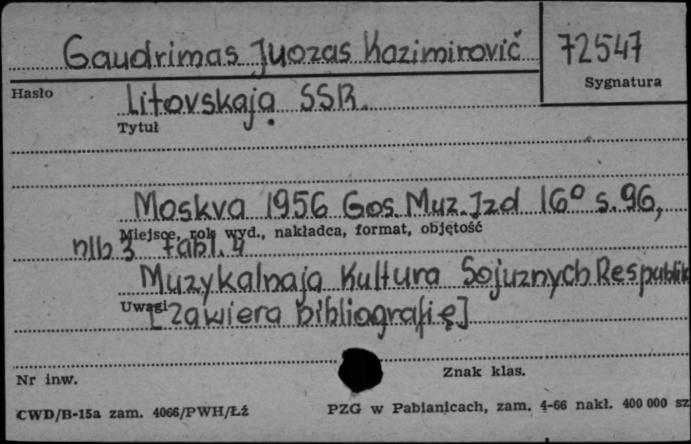 Gaudrimas Juozas Kazimirovič 72547
Hasło Sygnatura
Litovskaja SSR.
Tytuł
Moskva 1956 Gos. Muz. Izd 16° s. 96,
Miejsce, rok wyd., nakładca, format, objętość
nlb 3 tabl. 4
Muzykalnaja Kultura Sojuznych Respublik
Uwagi
[Zawiera bibliografię]
Nr inw. Znak klas.
CWD/B-15a zam. 4066/PWH/Łź PZG w Pabianicach, zam. 4-66 nakł. 400 000 sz